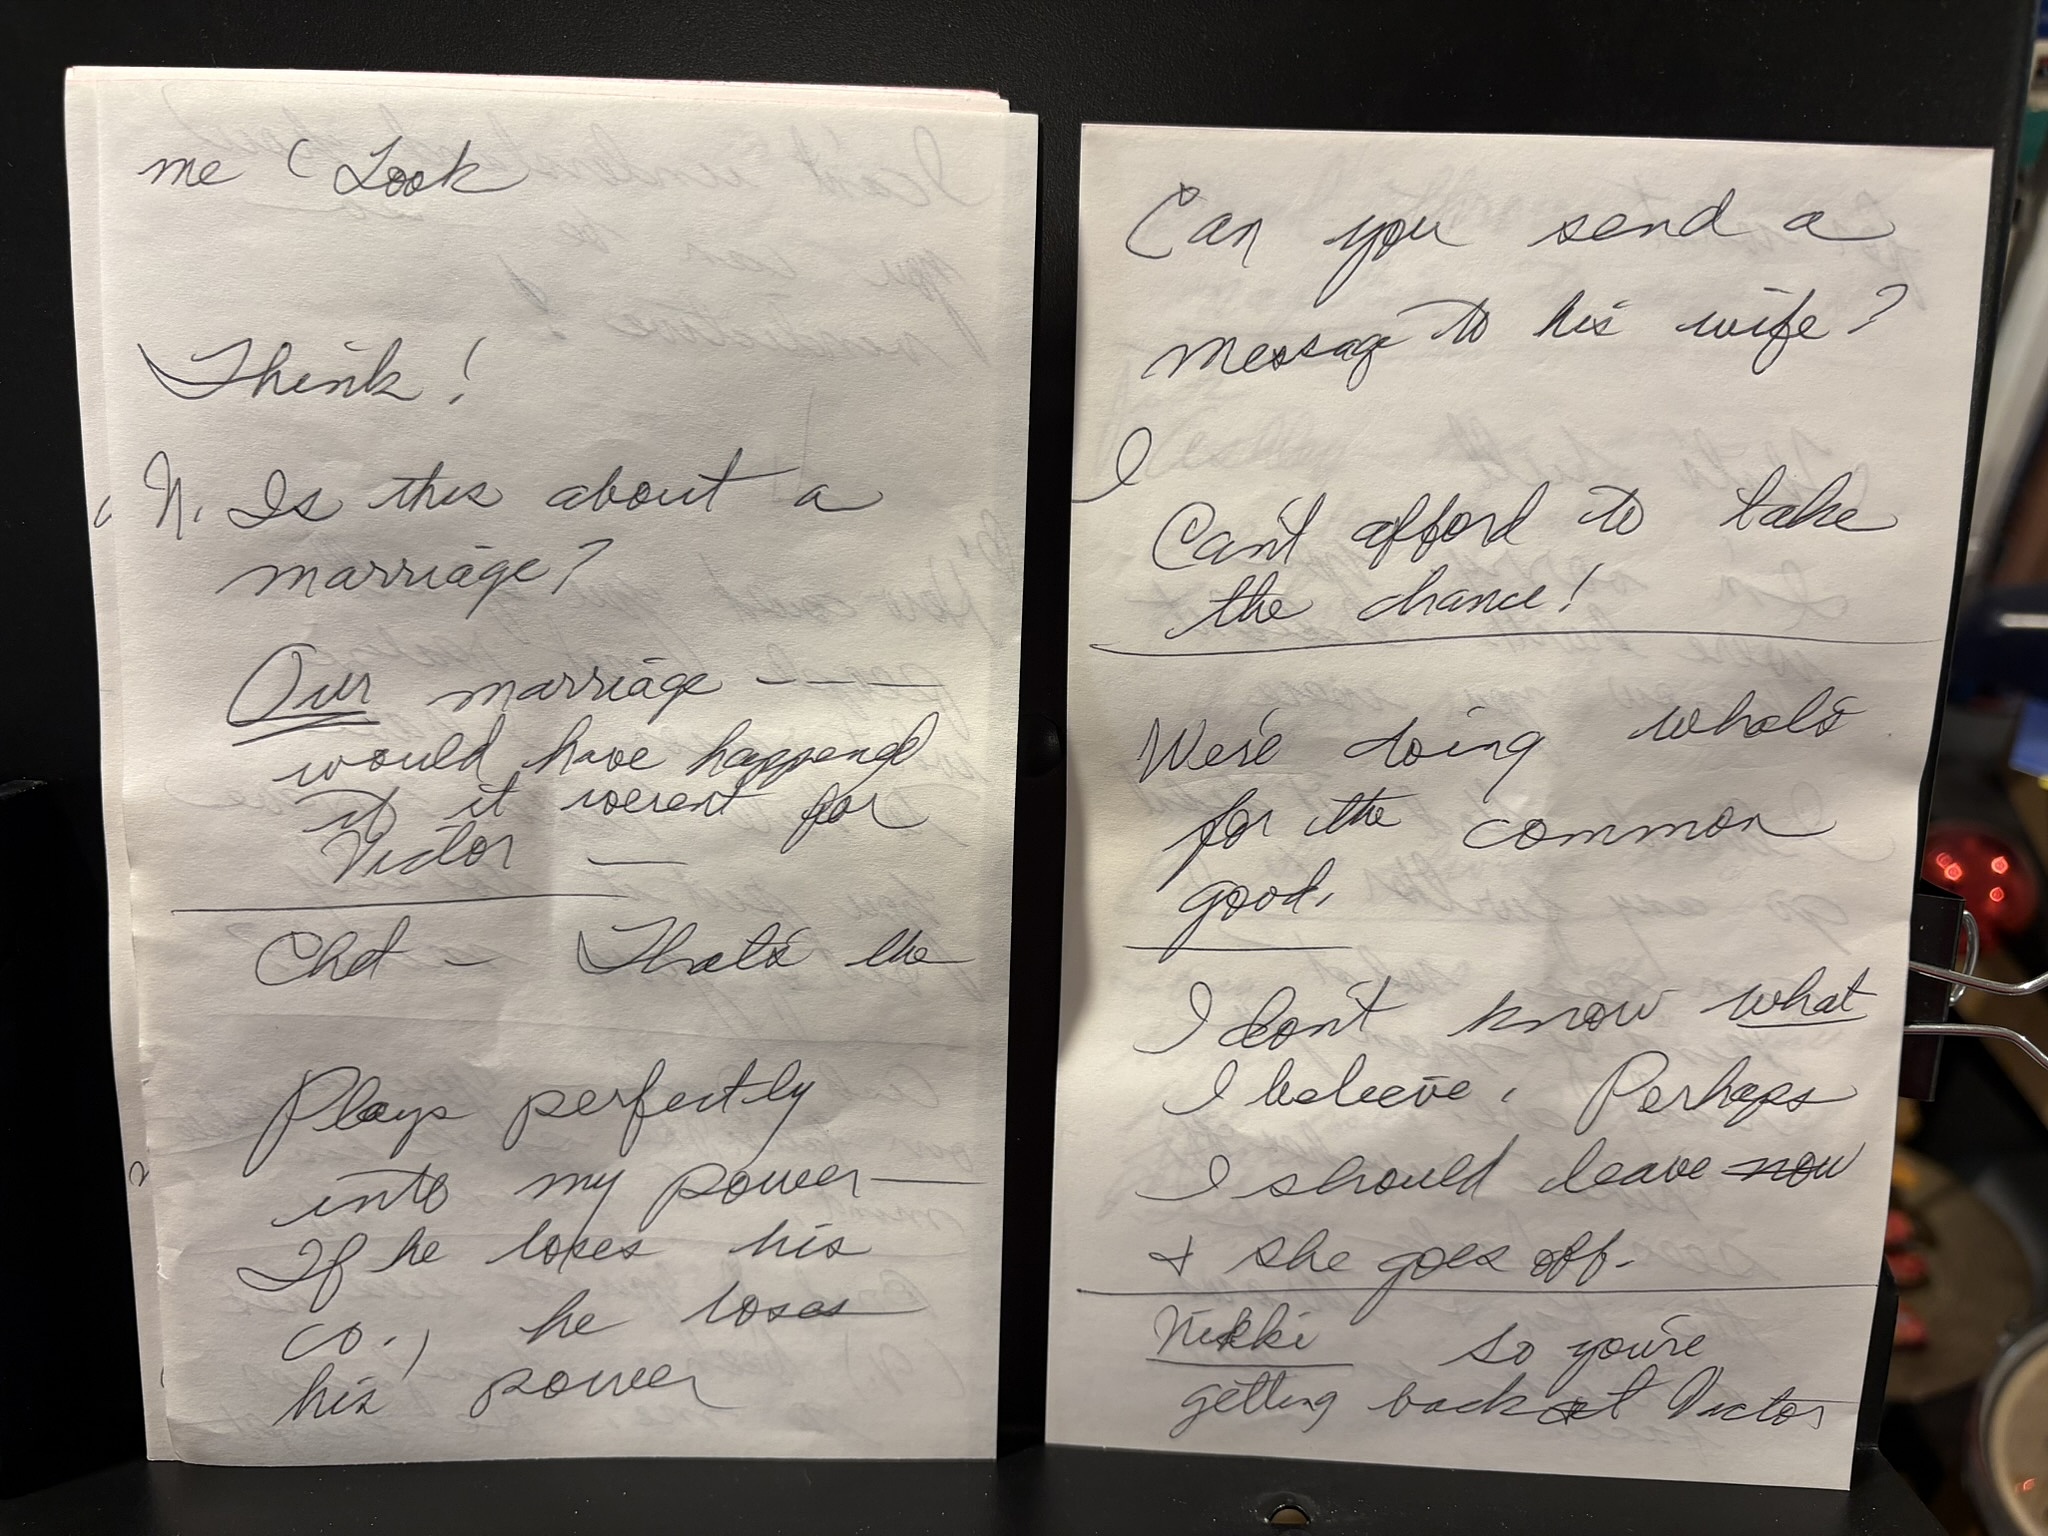 me ( Look
Think!
N. Is this about a
marriage?
Our marriage - - - -
would have happened
if it werent for
Victor —
Chet - That's the
Plays perfectly
into my power —
If he loses his
co., he loses
his power
Can you send a
message to his wife?
I
Can't afford to take
the chance!
We're doing what's
for the common
good.
I don't know what
I beleeve. Perhaps
I should leave now
+ she goes off.
Nikki so you're
getting back at Victor